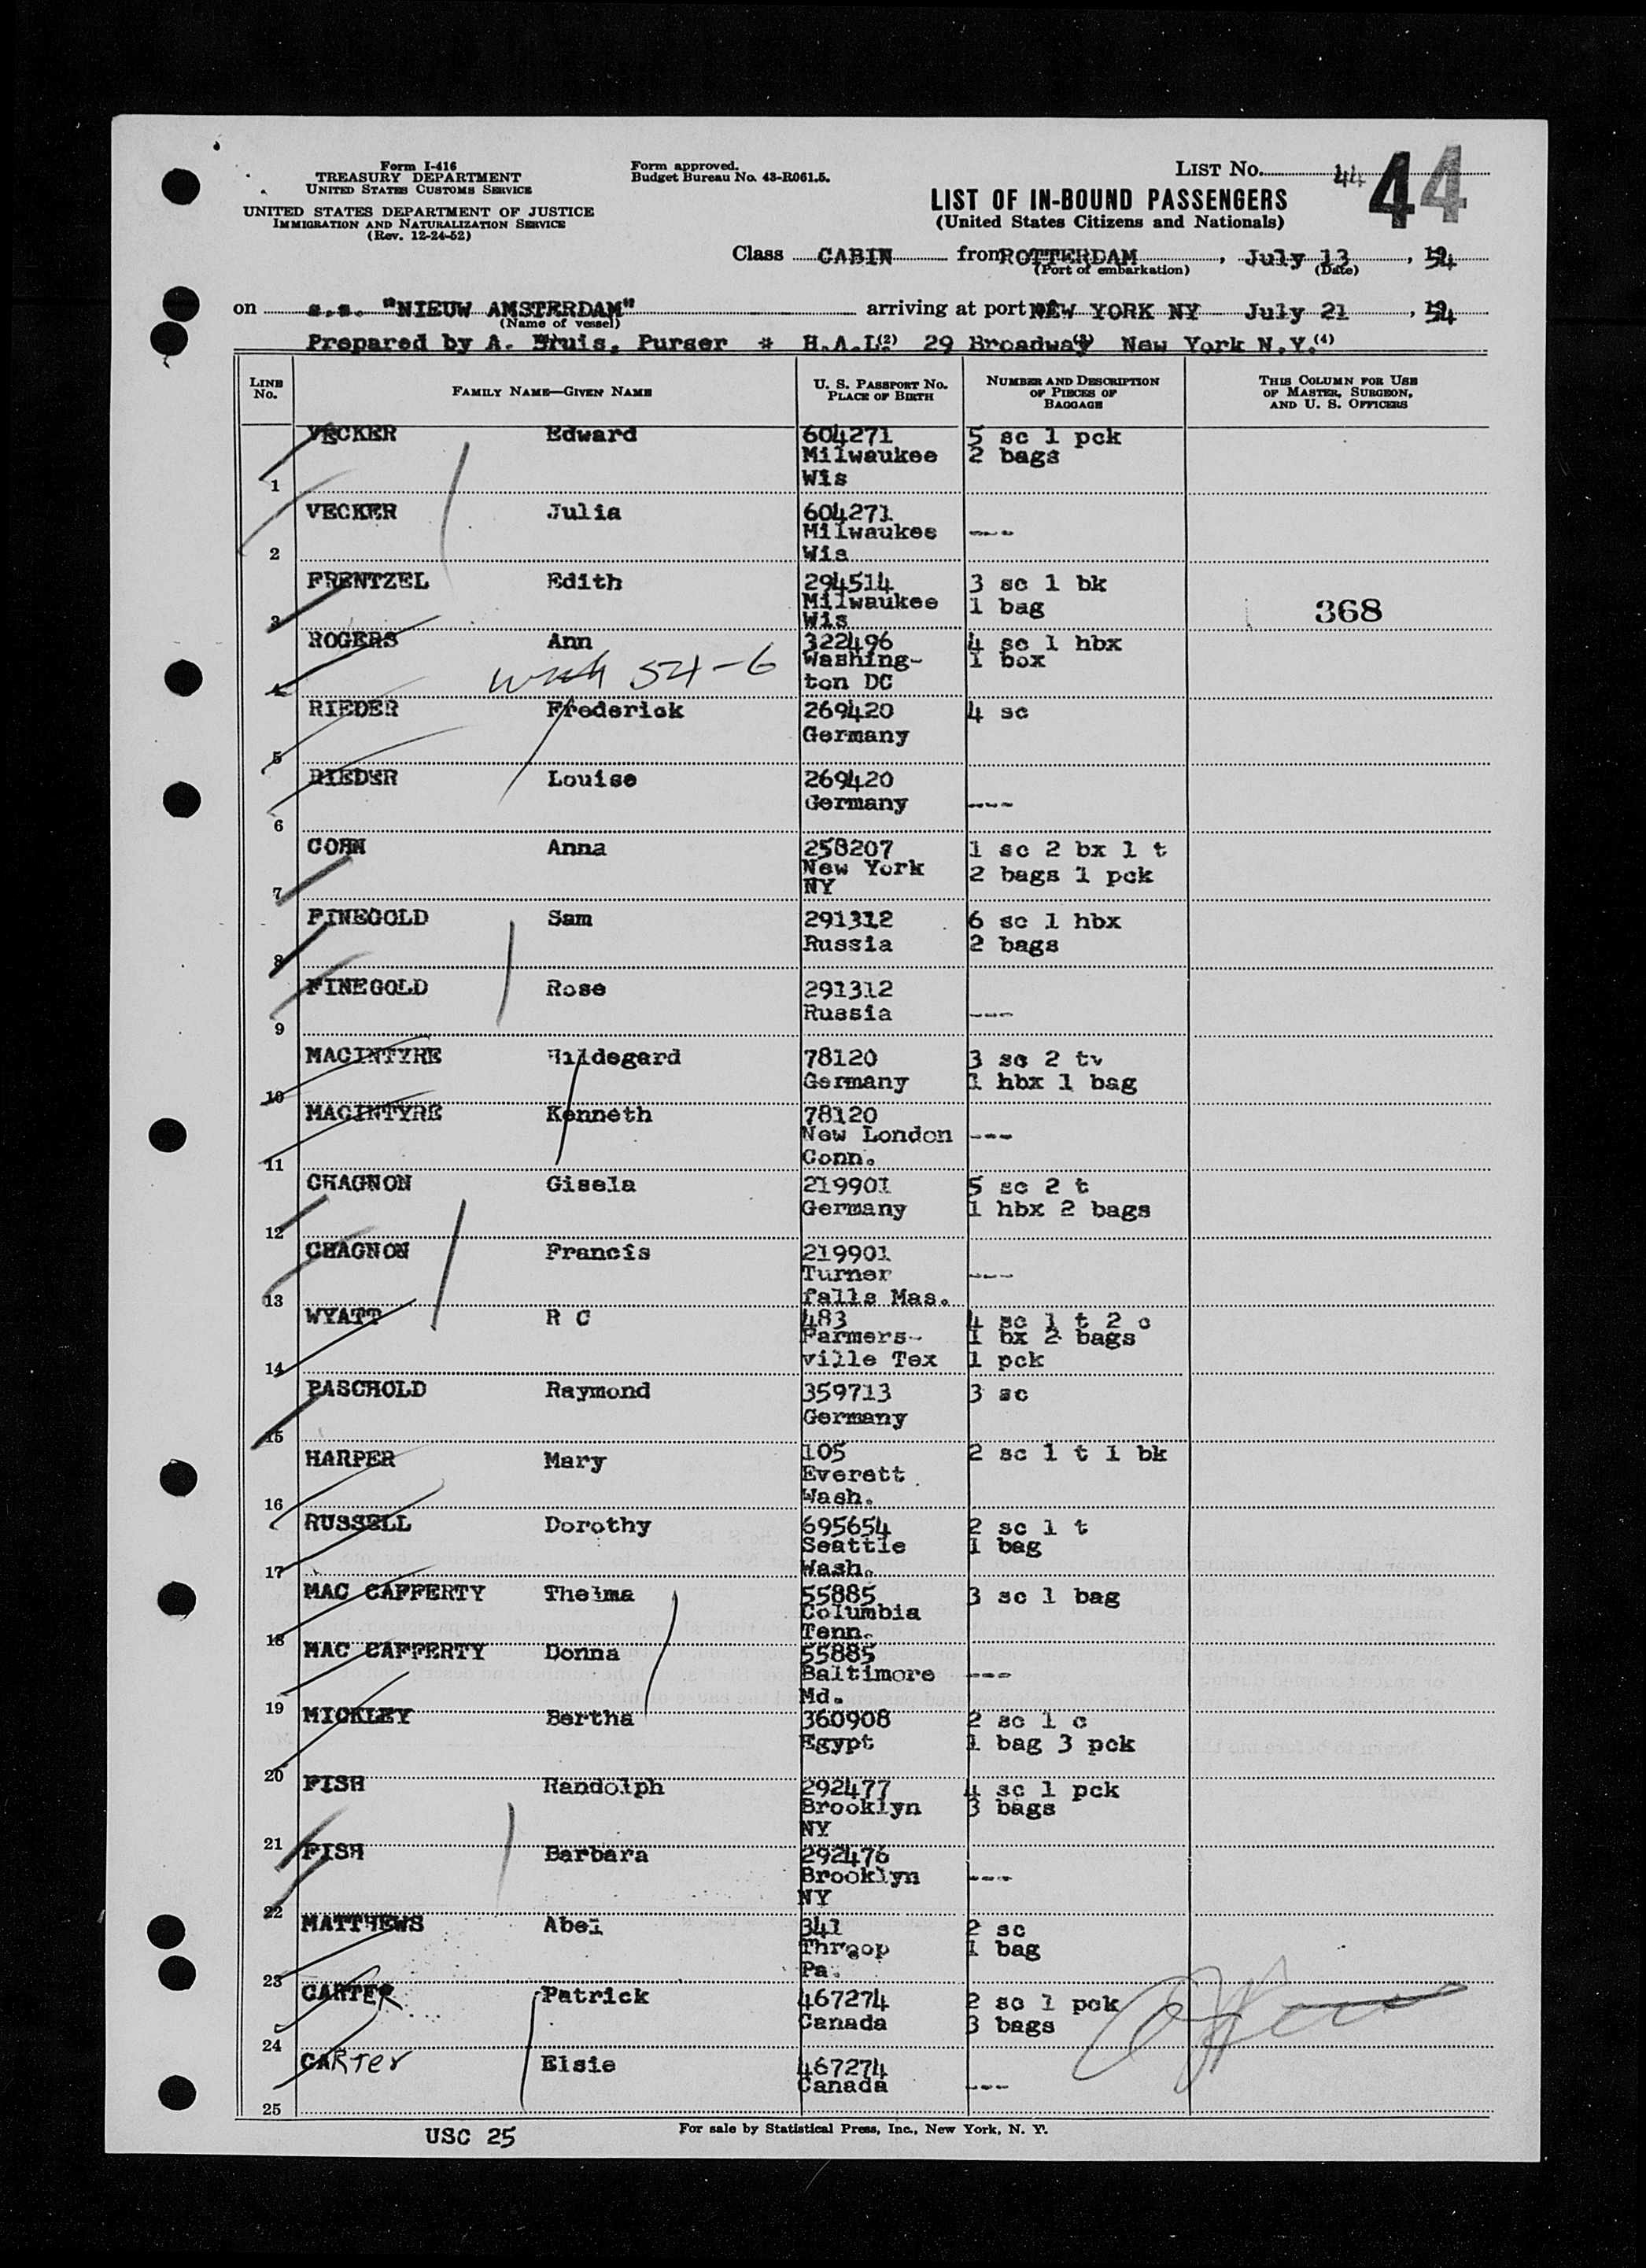 Form I-416
TREASURY DEPARTMENT
UNITED STATES CUSTOMS SERVICE
UNITED STATES DEPARTMENT OF JUSTICE
IMMIGRATION AND NATURALIZATION SERVICE
(Rev. 12-24-52)
Form approved.
Budget Bureau No. 43-R061.5.
LIST NO. 44 44
LIST OF IN-BOUND PASSENGERS
(United States Citizens and Nationals)
Class CABIN from ROTTERDAM, July 13, 1954
(Port of embarkation) (Date)
on s.s. "NIEUW AMSTERDAM" arriving at port NEW YORK NY July 21, 1954
(Name of vessel)
Prepared by A. Purser * H.A.L (2) 29 Broadway New York N.Y. (4)
LINE No. FAMILY NAME—GIVEN NAME U. S. PASSPORT NO. PLACE OF BIRTH NUMBER AND DESCRIPTION OF PIECES OF BAGGAGE THIS COLUMN FOR USE OF MASTER, SURGEON, AND U. S. OFFICERS
VECKER Edward 604271 5 sc 1 pck
Milwaukee 2 bags
1 Wis
VECKER Julia 604271
Milwaukee ---
2 Wis
FRENTZEL Edith 294514 3 sc 1 bk
Milwaukee 1 bag 368
3 Wis
ROGERS Ann 322496 4 sc 1 hbx
Washing- 1 box
54-6
4 ton DC
RIEDER Frederick 269420 4 sc
Germany
5
RIEDER Louise 269420
Germany ---
6
COHN Anna 258207 1 sc 2 bx 1 t
New York 2 bags 1 pck
7 NY
FINEGOLD Sam 291312 6 sc 1 hbx
Russia 2 bags
8
FINEGOLD Rose 291312
Russia ---
9
MACINTYRE Hildegard 78120 3 sc 2 tv
Germany 1 hbx 1 bag
10
MACINTYRE Kenneth 78120
New London ---
11 Conn.
CHAGNON Gisela 219901 5 sc 2 t
Germany 1 hbx 2 bags
12
CHAGNON Francis 219901
Turner ---
13 falls Mas.
WYATT R C 483 4 sc 1 t 2 c
Farmers- 1 bx 2 bags
14 ville Tex 1 pck
PASCHOLD Raymond 359713 3 sc
Germany
15
HARPER Mary 105 2 sc 1 t 1 bk
Everett
16 Wash.
RUSSELL Dorothy 695654 2 sc 1 t
Seattle 1 bag
17 Wash.
MAC CAFFERTY Thelma 55885 3 sc 1 bag
Columbia
18 Tenn.
MAC CAFFERTY Donna 55885
Baltimore ---
19 Md.
MICKLEY Bertha 360908 2 sc 1 c
Egypt 1 bag 3 pck
20
FISH Randolph 292477 4 sc 1 pck
Brooklyn 3 bags
21 NY
FISH Barbara 292476
Brooklyn ---
22 NY
MATTHEWS Abel 341 2 sc
Throop 1 bag
23 Pa.
CARTER Patrick 467274 2 sc 1 pck
Canada 3 bags
24
CARTER Elsie 467274
Canada ---
25
USC 25
For sale by Statistical Press, Inc., New York, N. Y.